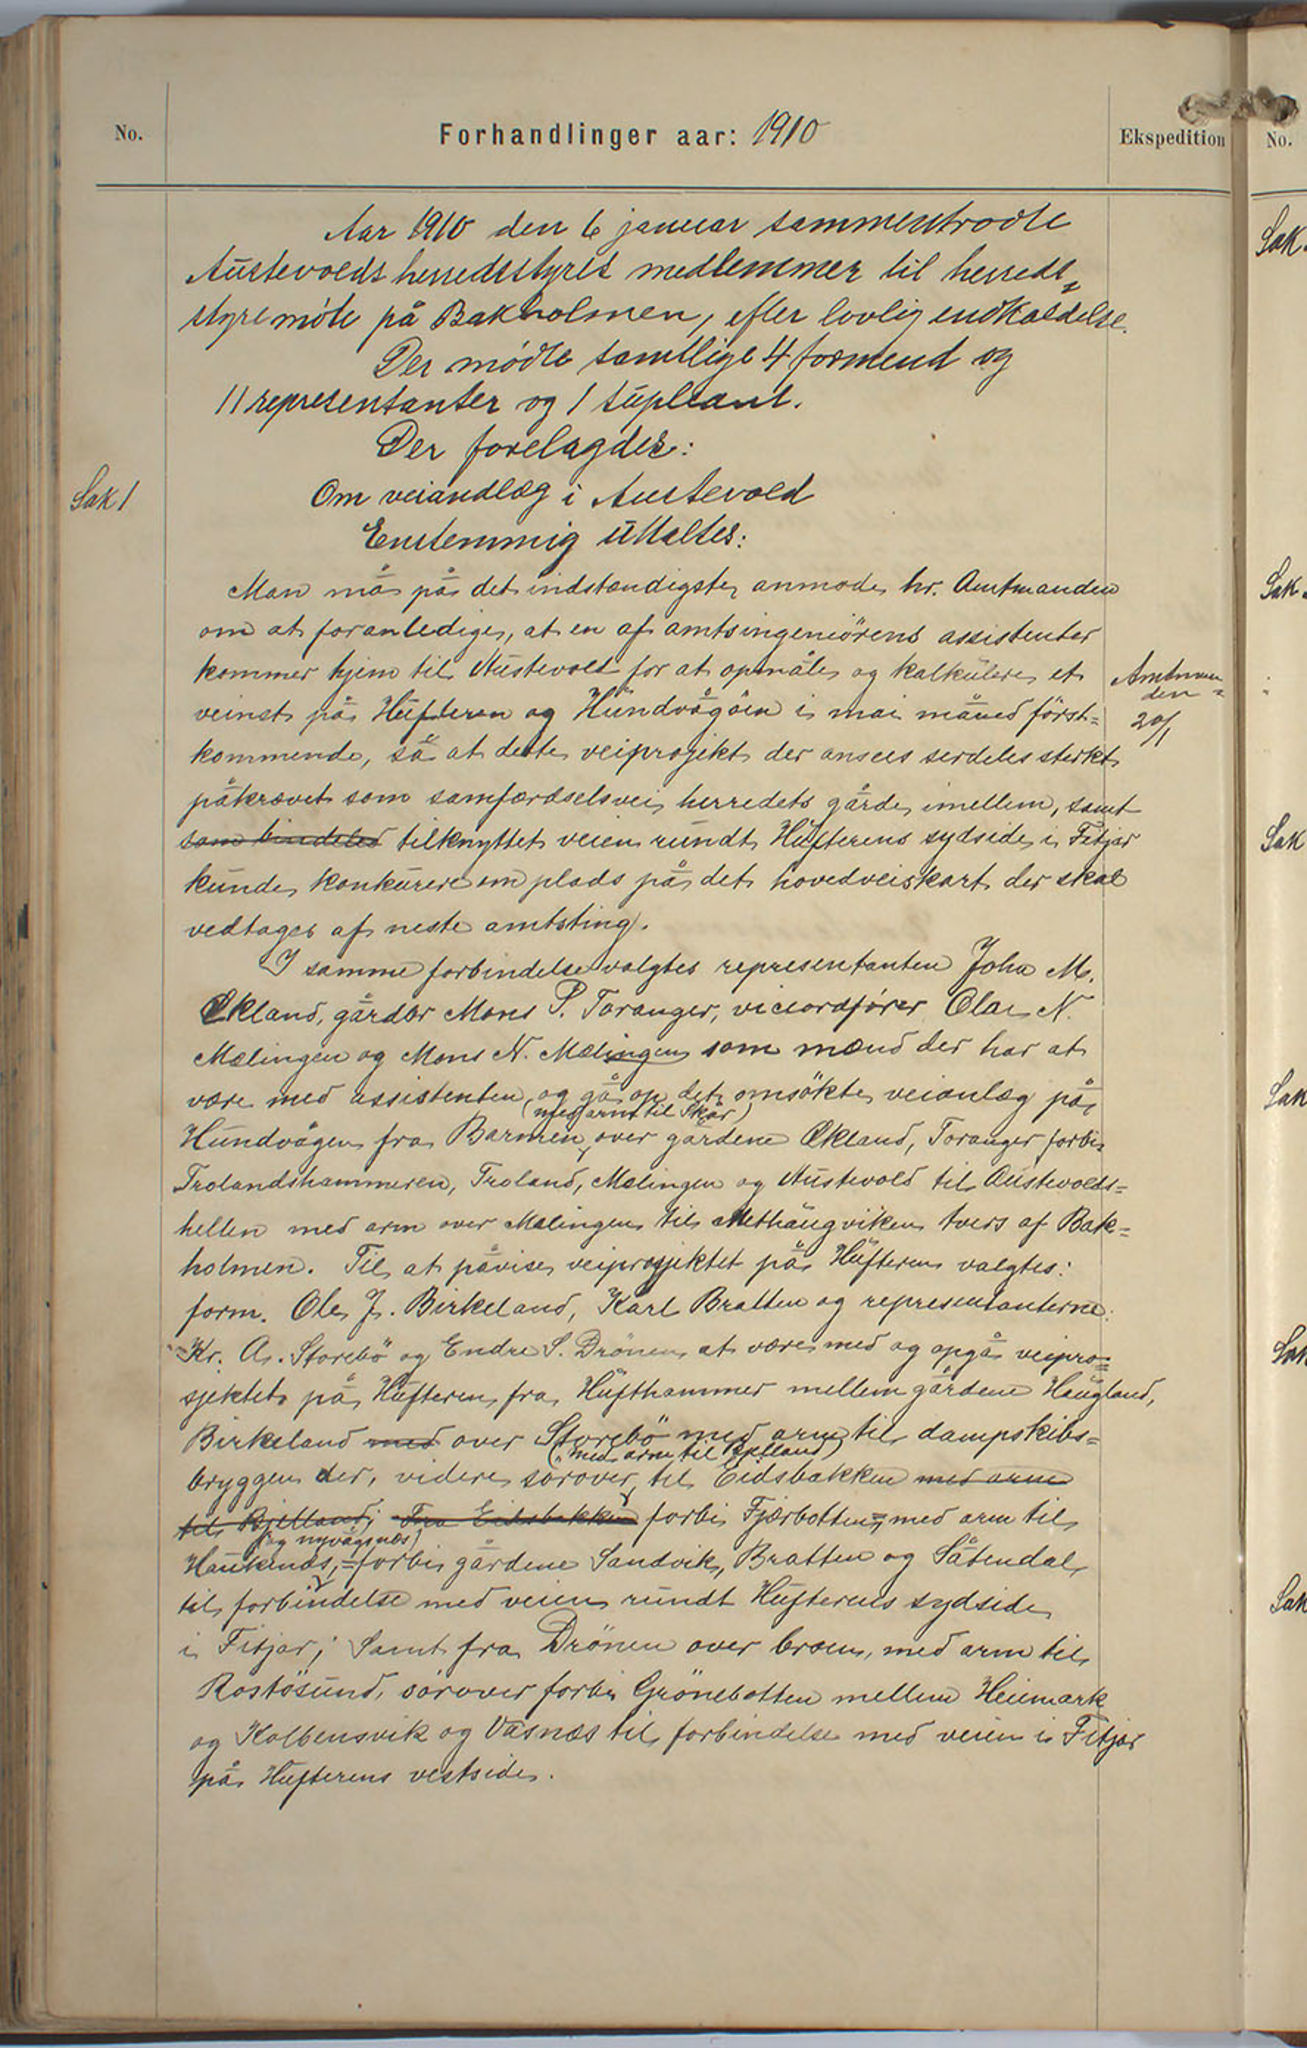 No.
Forhandlinger aar: 1910
Ekspedition
No.
Aar 1910 den 6 januar sammentrodte
Austevolds herredsstyres medlemmer til herreds=
styremöte på Bakholmen, efter lovlig indkaldelse.
Der mödte samtlige 4 formend og
11 representanter og 1 supleant.
Der forelagdes:
Sak 1
Om veiandlæg i Austevold
Enstemmig uttaltes:
Man må på det indstændigste anmode hr. Amtmanden
om at foranledige, at en af amtsingeniörens assistenter
kommer hjem til Austevold for at opmåle og kalkulere et
Amtman
den =
veinet på Hufteren og Hundvågöen i mai måned först=
20/1
kommende, så at dette veiprojekt der ansees serdeles sterkt
påkrævet som samfærdselsvei herredets gårde imellem, samt
som bindeled tilknyttet veien rundt Hufterens sydside i Fitjar
kunde konkurere om plads på det hovedveiskart der skal
vedtages af neste amtsting.
I samme forbindelse valgtes representanten John M.
Økland, gårdbr Mons P. Toranger, viceordförer Olai N.
Mælingen og Mons N. Mælingen som mænd der har at
være med assistenten og gå op det omsökte veianlæg på
(med arm til Skår)
Hundvågen fra Barmen over gårdene Økland, Toranger forbi
Trolandshammeren, Troland, Mælingen og Austevold til Austevolds=
hellen med arm over Mælingen til Methaugviken tvers af Bak=
holmen. Til at påvise veiprosjektet på Hufteren valgtes:
form. Ole J. Birkeland, Karl Bratten og representanterne
Kr. A. Storebö og Endre S. Drönen at være med og opgå veipro=
sjektet på Hufteren fra Hufthammer mellem gårdene Haugland,
Birkeland med over Storebö med arm til dampskibs=
(med arm til Bjelland)
bryggen der, videre sörover til Eidsbakken med arm
til Bjelland; Fra Eidsbakken forbi Fjærbotten, med arm til
(og nyvågsnæs)
Haukenæs, = forbi gårdene Sandvik, Bratten og Såtendal
til forbindelse med veien rundt Hufterens sydside
i Fitjar; Samt fra Drönen over broen, med arm til
Rostösund, sörover forbi Grönebotten mellem Heimark
og Kolbensvik og Vasnæs til forbindelse med veien i Fitjar
på Hufterens vestside.
Sak
Sak
Sak
Sak
Sak
Sak